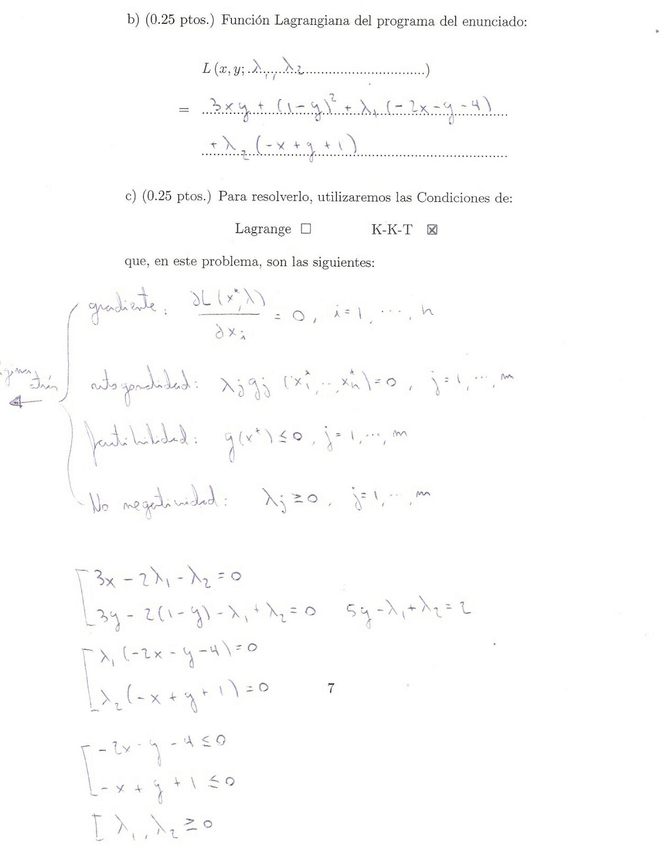 b) (0.25 ptos.) Función Lagrangiana del programa del enunciado:
L (x, y; λ₁, λ₂)
= 3xy + (1-y)² + λ₁ (-2x-y-4)
+ λ₂ (-x+y+1)
c) (0.25 ptos.) Para resolverlo, utilizaremos las Condiciones de:
Lagrange ☐ K-K-T ☒
que, en este problema, son las siguientes:
gradiente: ∂L(x*,λ)/∂xᵢ = 0, i=1, ..., n
ortogonalidad: λⱼgⱼ (x₁*, .., xₙ*)=0, j=1, .., m
factibilidad: g(x*) ≤ 0, j=1, ..., m
No negatividad: λⱼ ≥ 0, j=1, .. m
3x - 2λ₁ - λ₂ = 0
3y - 2(1-y) - λ₁ + λ₂ = 0 5y - λ₁ + λ₂ = 2
λ₁ (-2x - y - 4) = 0
λ₂ (-x + y + 1) = 0
7
-2x - y - 4 ≤ 0
-x + y + 1 ≤ 0
λ₁, λ₂ ≥ 0